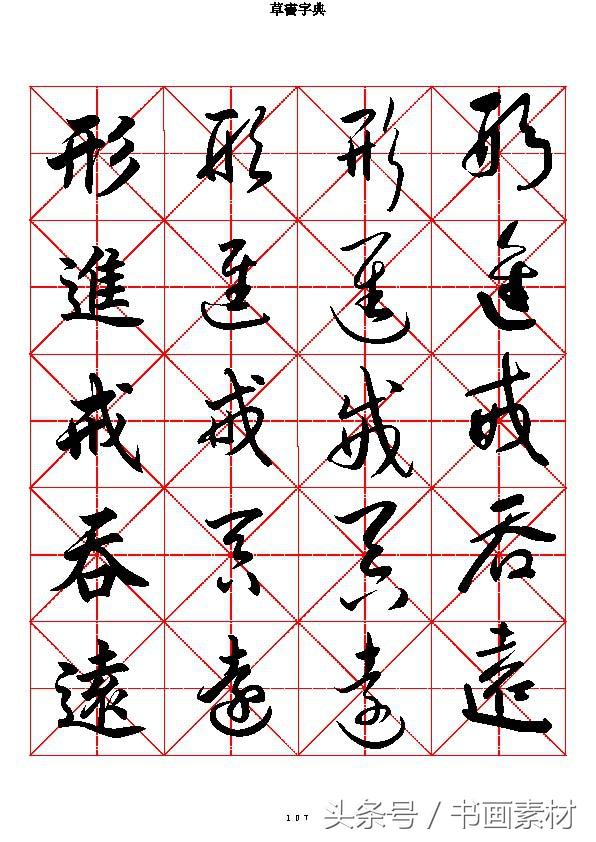 草書字典
形 形 形 形
進 進 進 進
戒 戒 戒 戒
吞 吞 吞 吞
遠 遠 遠 遠
107
头条号 / 书画素材